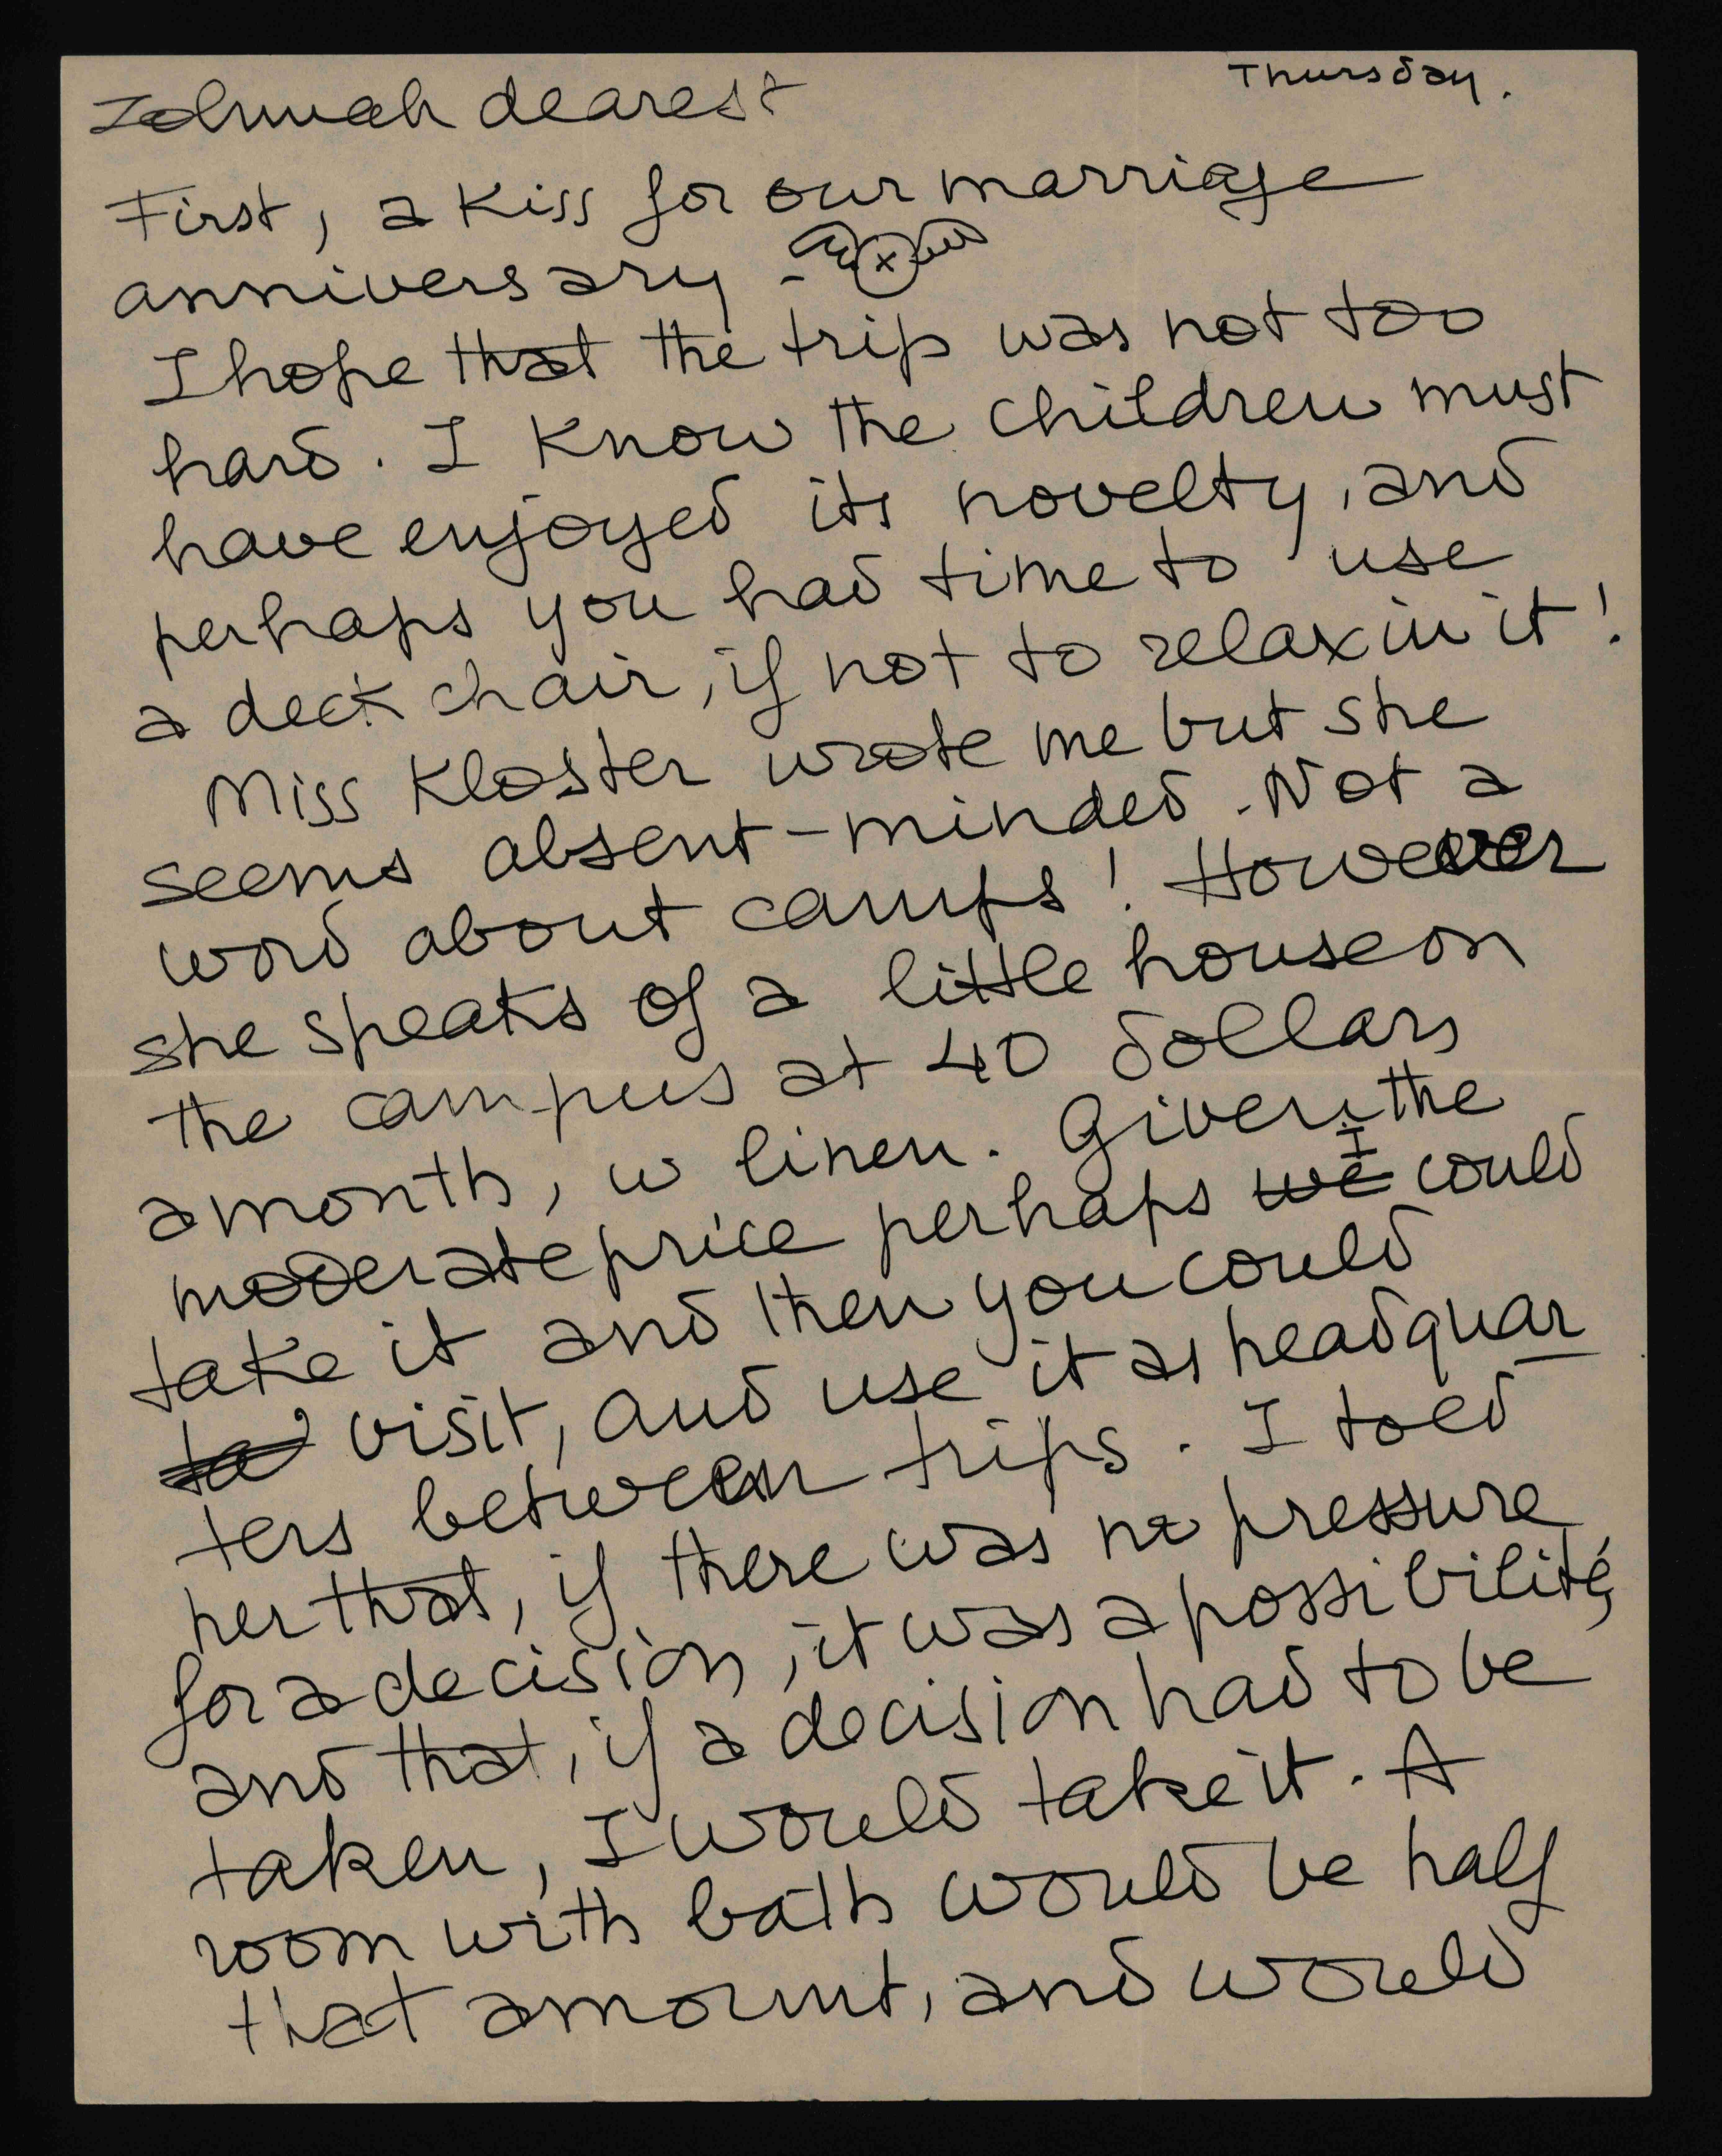 Thursday.
Zohmah dearest
First, a kiss for our marriage
anniversary - x
I hope that the trip was not too
hard. I know the children must
have enjoyed its novelty, and
perhaps you had time to use
a deck chair, if not to relax in it!
Miss Kloster wrote me but she
seems absent-minded. Not a
word about camps! However
she speaks of a little house on
the campus at 40 dollars
a month, w linen. Given the
moderate price perhaps we I could
take it and then you could
to visit, and use it as headquar
ters between trips. I told
her that, if there was no pressure
for a decision, it was a possibilité,
and that, if a decision had to be
taken, I would take it. A
room with bath would be half
that amount, and would